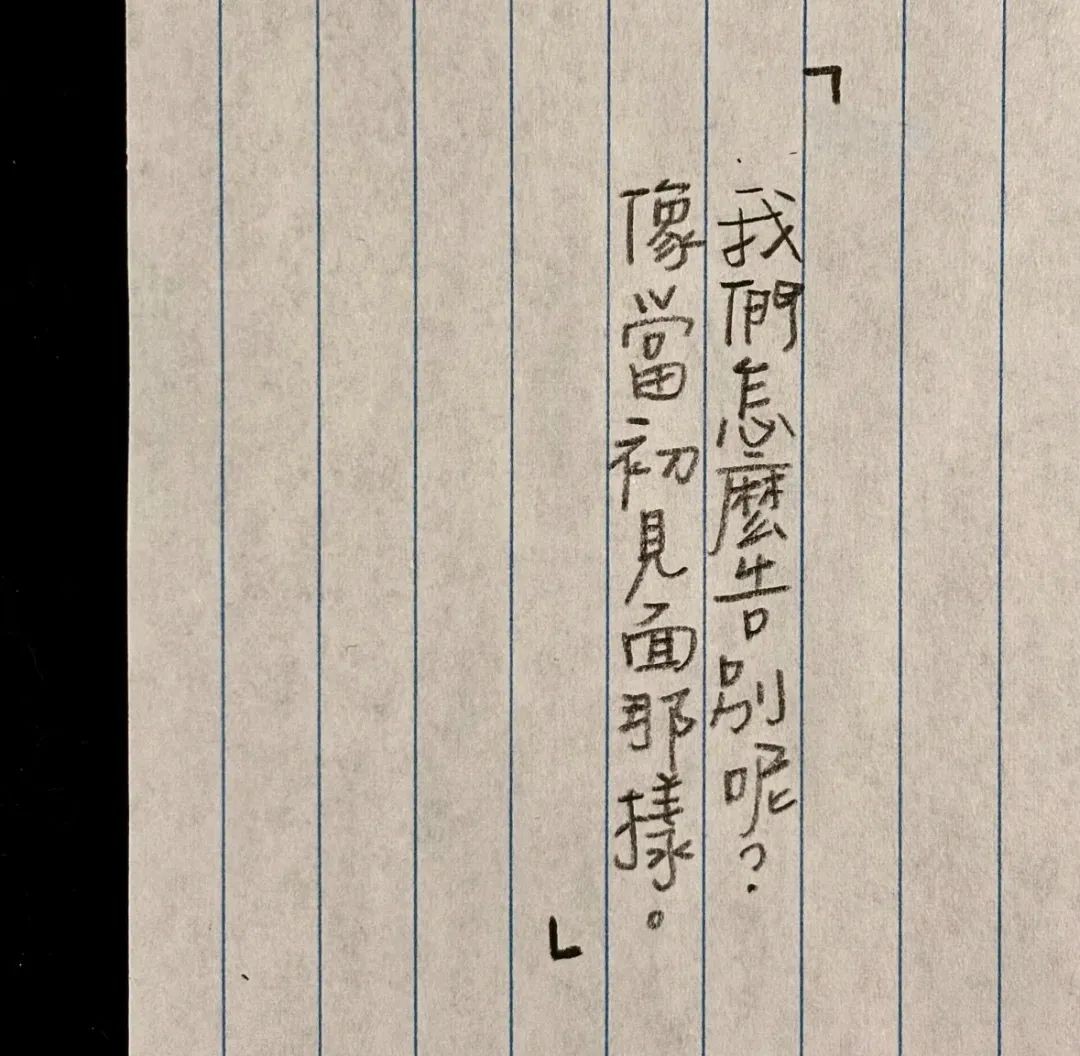 我們怎麼告別呢？
像當初見面那樣。